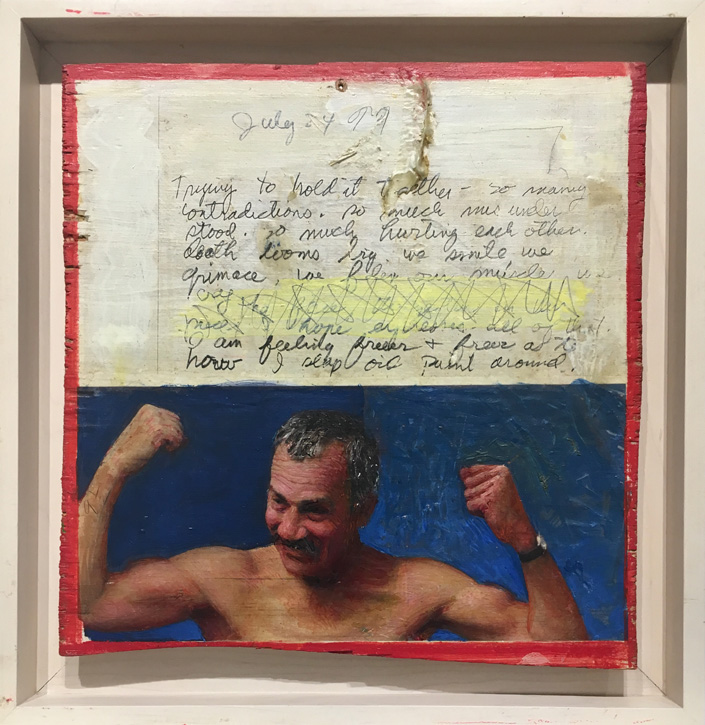 July 24 99
Trying to hold it together - so many
contradictions. so much misunder
stood. so much hurting each other.
death looms big we smile we
grimace, we flex our muscle we
cry
I hope all of that.
I am feeling freer & freer as to
how I slap oil paint around.